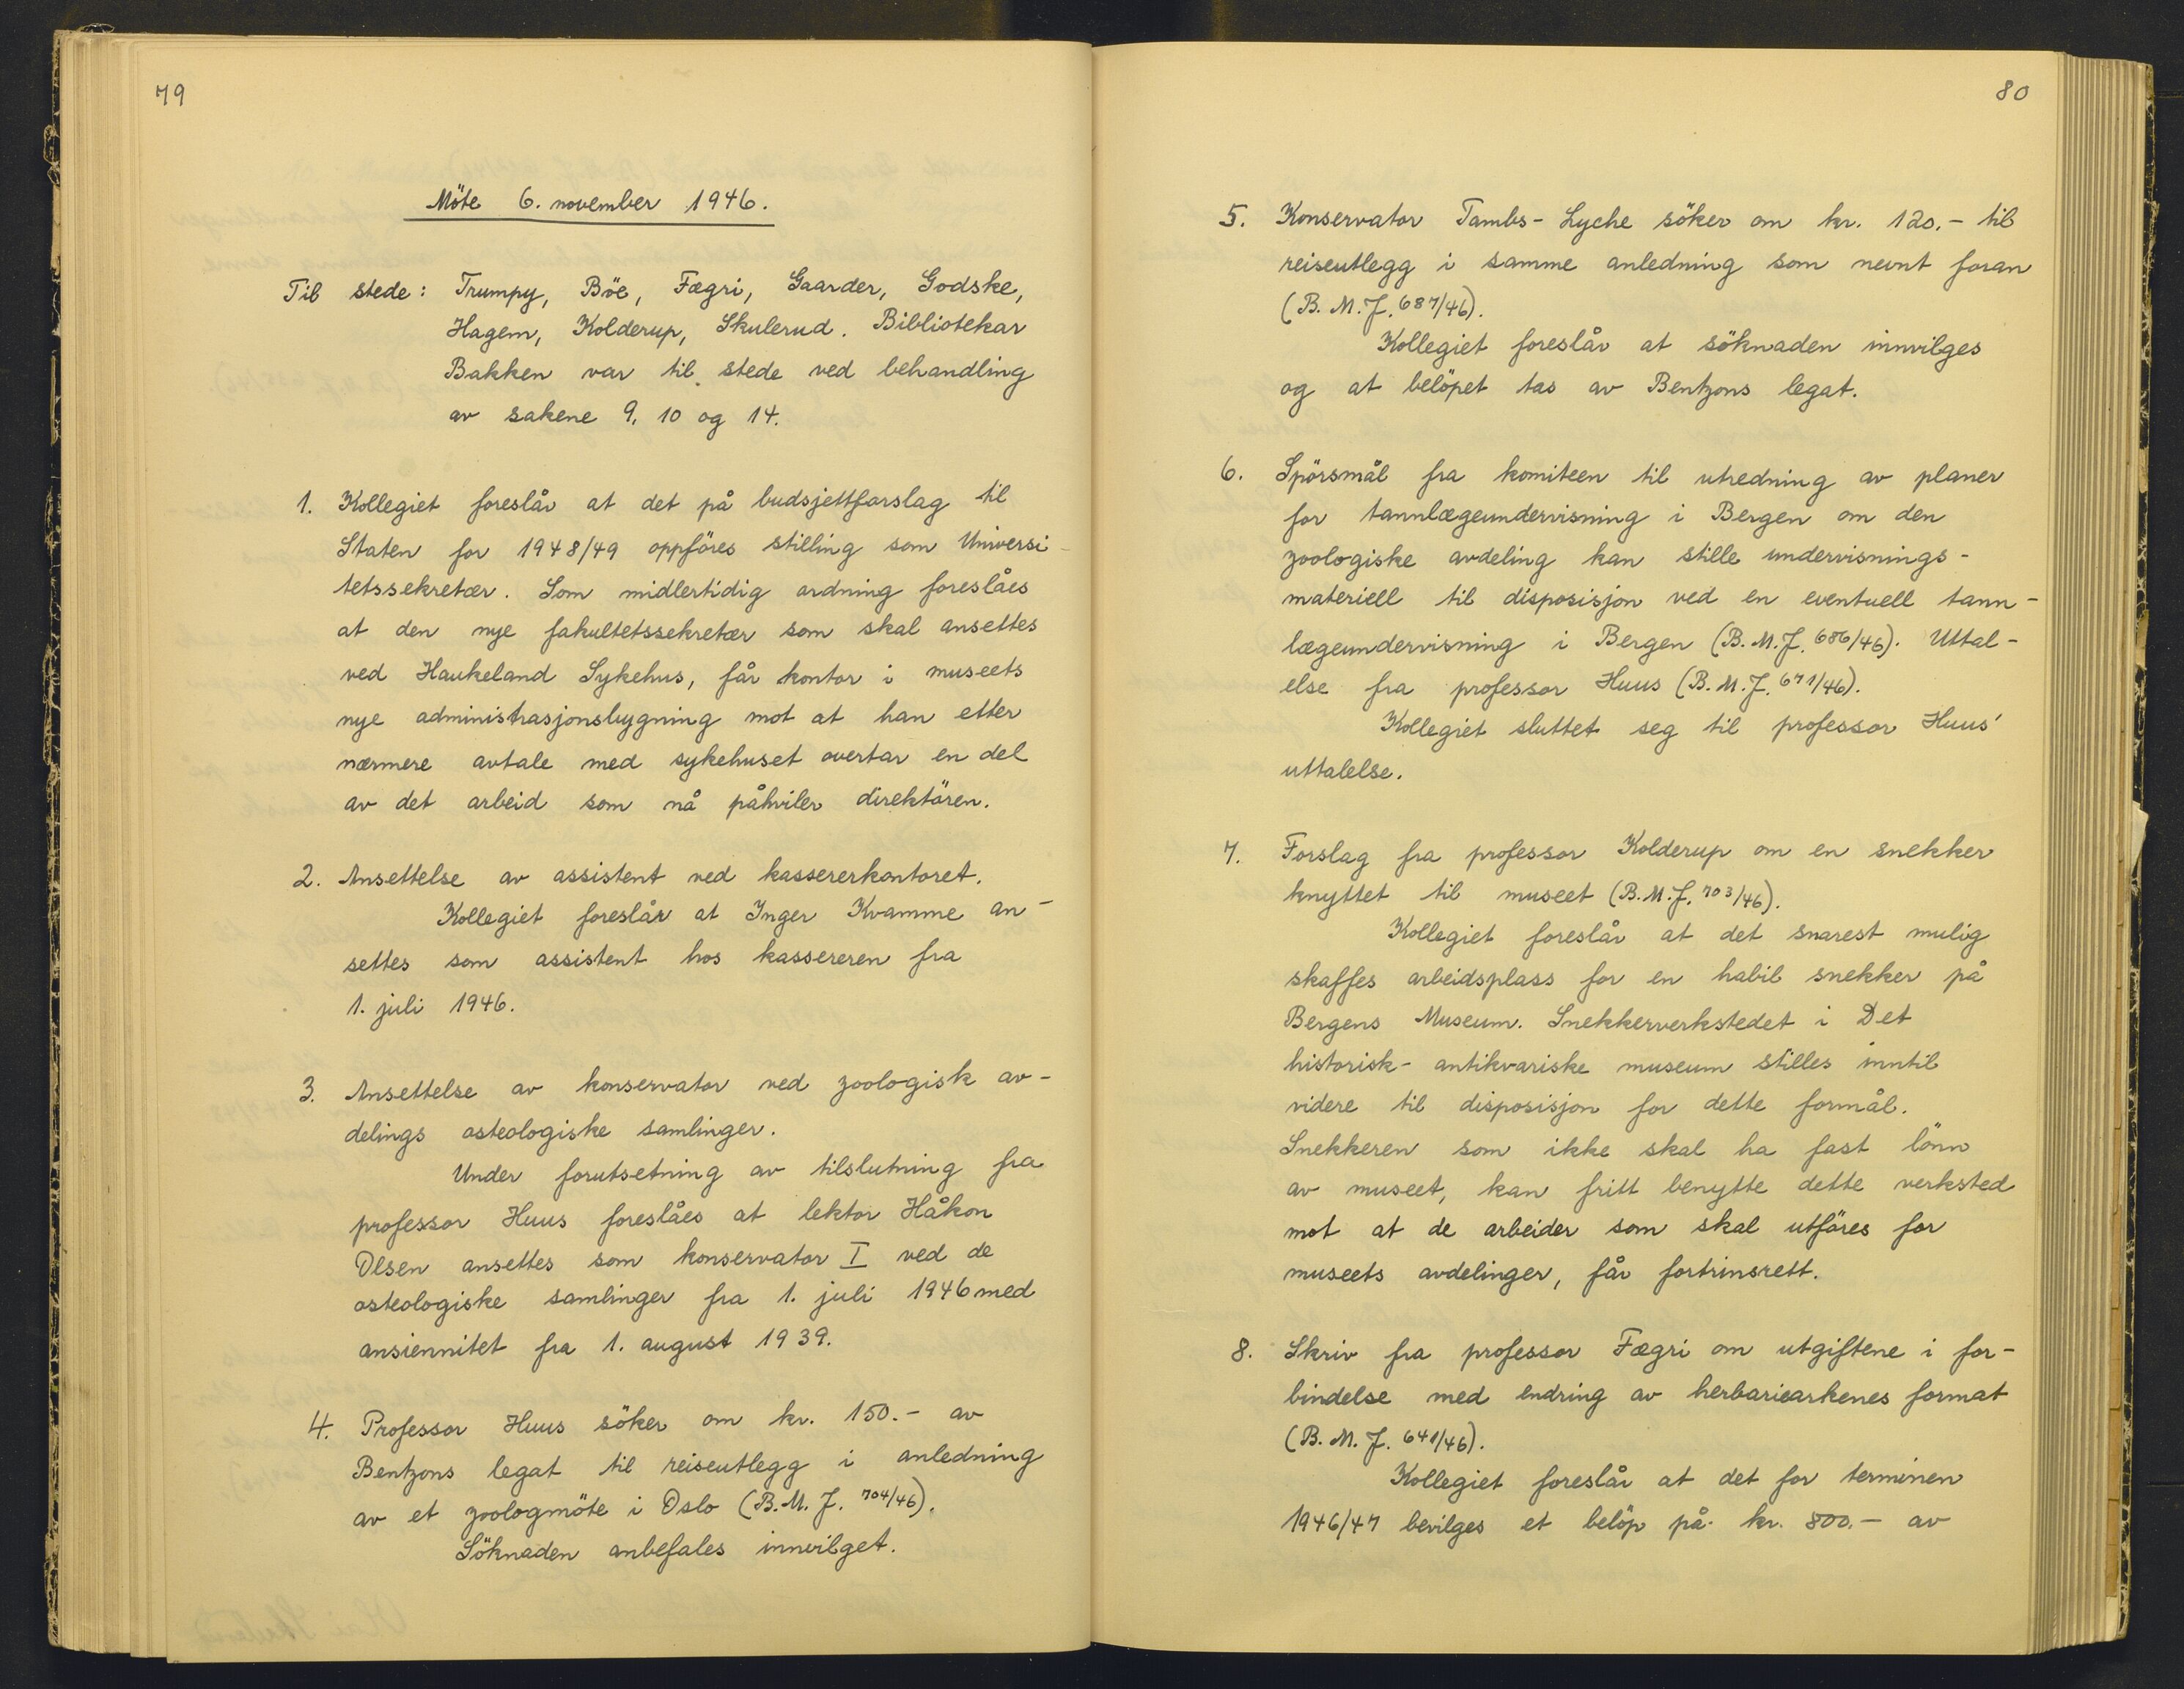 79
Möte 6. november 1946.
Til stede: Trumpy, Böe, Fægri, Gaarder, Godske,
Hagem, Kolderup, Skulerud. Bibliotekar
Bakken var til stede ved behandling
av sakene 9, 10 og 14.
1. Kollegiet foreslår at det på budsjettforslag til
Staten for 1948/49 oppföres stilling som Universi-
tetssekretær. Som midlertidig ordning foreslåes
at den nye fakultetssekretær som skal ansettes
ved Haukeland Sykehus, får kontor i museets
nye administrasjonsbygning mot at han etter
nærmere avtale med sykehuset overtar en del
av det arbeid som nå påhviler direktören.
2. Ansettelse av assistent ved kassererkontoret.
Kollegiet foreslår at Inger Kvamme an-
settes som assistent hos kassereren fra
1. juli 1946.
3. Ansettelse av konservator ved zoologisk av-
delings osteologiske samlinger.
Under forutsetning av tilslutning fra
professor Huus foreslåes at lektor Håkon
Olsen ansettes som konservator I ved de
osteologiske samlinger fra 1. juli 1946 med
ansiennitet fra 1. august 1939.
4. Professor Huus söker om kr. 150.- av
Bentzons legat til reiseutlegg i anledning
av et zoologmöte i Oslo (B.M.J. 704/46).
Söknaden anbefales innvilget.
80
5. Konservator Tambs-Lyche söker om kr. 120.- til
reiseutlegg i samme anledning som nevnt foran
(B.M.J. 687/46).
Kollegiet foreslår at söknaden innvilges
og at belöpet tas av Bentzons legat.
6. Spörsmål fra komiteen til utredning av planer
for tannlægeundervisning i Bergen om den
zoologiske avdeling kan stille undervisnings-
materiell til disposisjon ved en eventuell tann-
lægeundervisning i Bergen (B.M.J. 686/46). Uttal-
else fra professor Huus (B.M.J. 671/46).
Kollegiet sluttet seg til professor Huus'
uttalelse.
7. Forslag fra professor Kolderup om en snekker
knyttet til museet (B.M.J. 703/46).
Kollegiet foreslår at det snarest mulig
skaffes arbeidsplass for en habil snekker på
Bergens Museum. Snekkerverkstedet i Det
historisk-antikvariske museum stilles inntil
videre til disposisjon for dette formål.
Snekkeren som ikke skal ha fast lönn
av museet, kan fritt benytte dette verksted
mot at de arbeider som skal utföres for
museets avdelinger, får fortrinsrett.
8. Skriv fra professor Fægri om utgiftene i for-
bindelse med endring av herbariearkenes format
(B.M.J. 641/46).
Kollegiet foreslår at det for terminen
1946/47 bevilges et belöp på kr. 800.- av